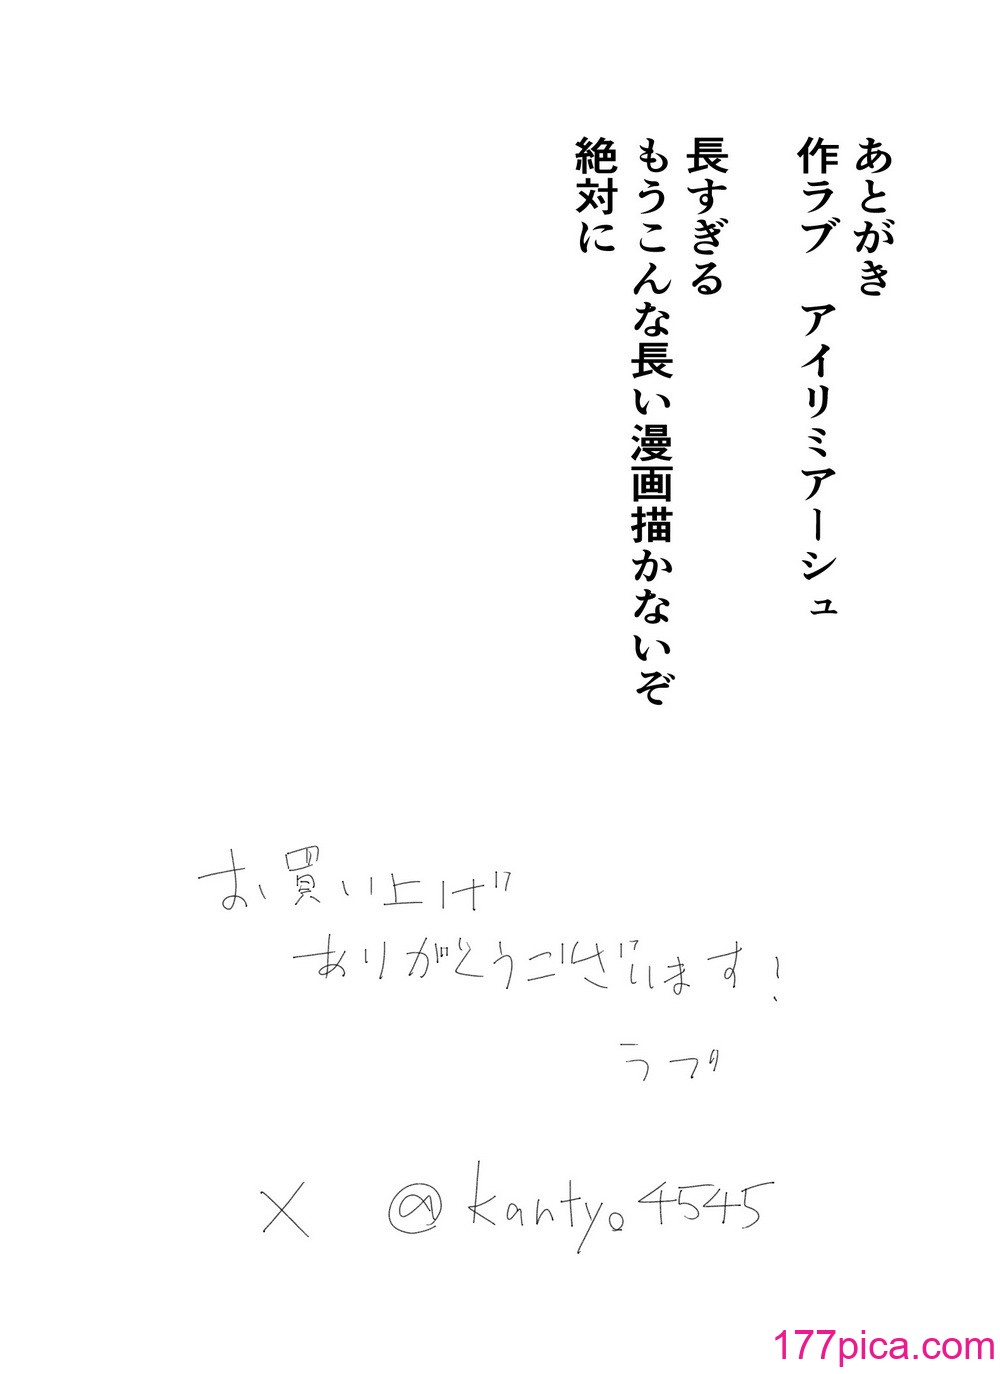 あとがき
作ラブ　アイリミアーシュ
長すぎる
もうこんな長い漫画描かないぞ
絶対に
お買い上げ
ありがとうございます!
ラブ
X @kantyo4545
177pica.com